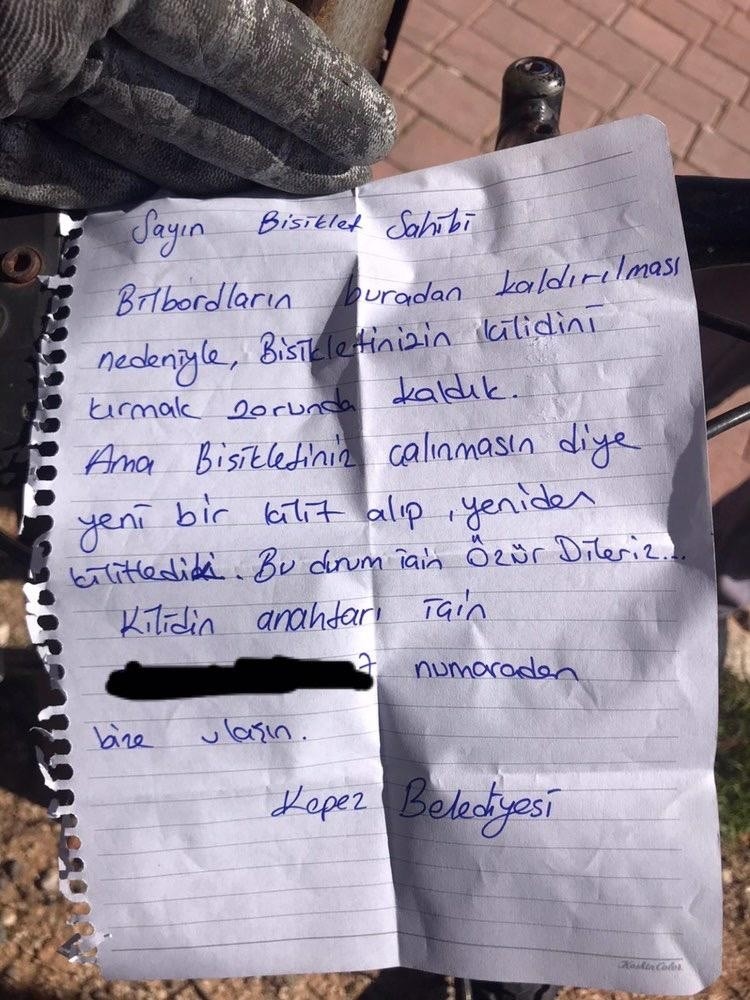 Sayın Bisiklet Sahibi
Bilbordların buradan kaldırılması
nedeniyle, Bisikletinizin kilidini
kırmak zorunda kaldık.
Ama Bisikletiniz çalınmasın diye
yeni bir kilit alıp, yeniden
kilitledik. Bu durum için Özür Dileriz...
Kilidin anahtarı için
7 numaradan
bize ulaşın.
Kepez Belediyesi